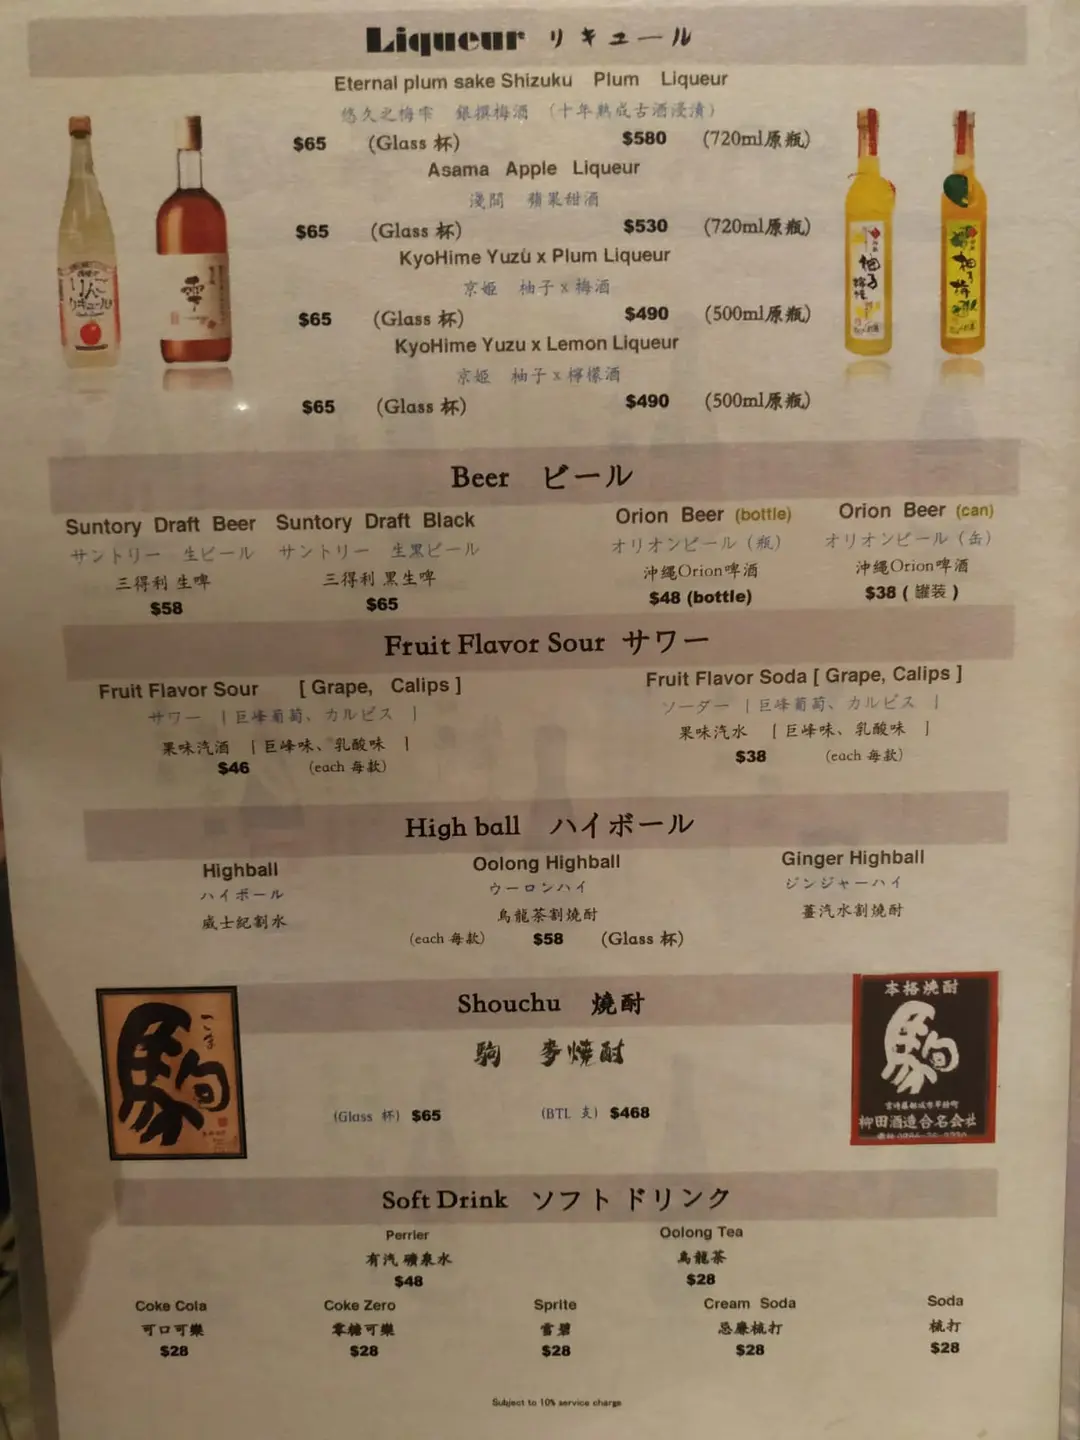 Liqueur リキュール
Eternal plum sake Shizuku Plum Liqueur
悠久之梅雫 銀撰梅酒 (十年熟成古酒浸漬)
$65 (Glass 杯) $580 (720ml原瓶)
Asama Apple Liqueur
淺間 蘋果甜酒
$65 (Glass 杯) $530 (720ml原瓶)
KyoHime Yuzu x Plum Liqueur
京姫 柚子x梅酒
$65 (Glass 杯) $490 (500ml原瓶)
KyoHime Yuzu x Lemon Liqueur
京姫 柚子x檸檬酒
$65 (Glass 杯) $490 (500ml原瓶)
りんご
リキュール
雫
柚子
柚子
Beer ビール
Suntory Draft Beer Suntory Draft Black Orion Beer (bottle) Orion Beer (can)
サントリー 生ビール サントリー 生黒ビール オリオンビール (瓶) オリオンビール (缶)
三得利 生啤 三得利 黑生啤 沖縄Orion啤酒 沖縄Orion啤酒
$58 $65 $48 (bottle) $38 ( 罐装 )
Fruit Flavor Sour サワー
Fruit Flavor Sour [ Grape, Calips ] Fruit Flavor Soda [ Grape, Calips ]
サワー [ 巨峰葡萄、カルピス ] ソーダー [ 巨峰葡萄、カルピス ]
果味汽酒 [ 巨峰味、乳酸味 ] 果味汽水 [ 巨峰味、乳酸味 ]
$46 (each 每款) $38 (each 每款)
High ball ハイボール
Highball Oolong Highball Ginger Highball
ハイボール ウーロンハイ ジンジャーハイ
威士紀割水 烏龍茶割焼酎 薑汽水割焼酎
(each 每款) $58 (Glass 杯)
Shouchu 燒酎
駒 麥燒酎
(Glass 杯) $65 (BTL 支) $468
駒
こま
本格焼酎
駒
宮崎縣都城市早鈴町
柳田酒造合名会社
Soft Drink ソフトドリンク
Perrier Oolong Tea
有汽 礦泉水 烏龍茶
$48 $28
Coke Cola Coke Zero Sprite Cream Soda Soda
可口可樂 零糖可樂 雪碧 忌廉梳打 梳打
$28 $28 $28 $28 $28
Subject to 10% service charge